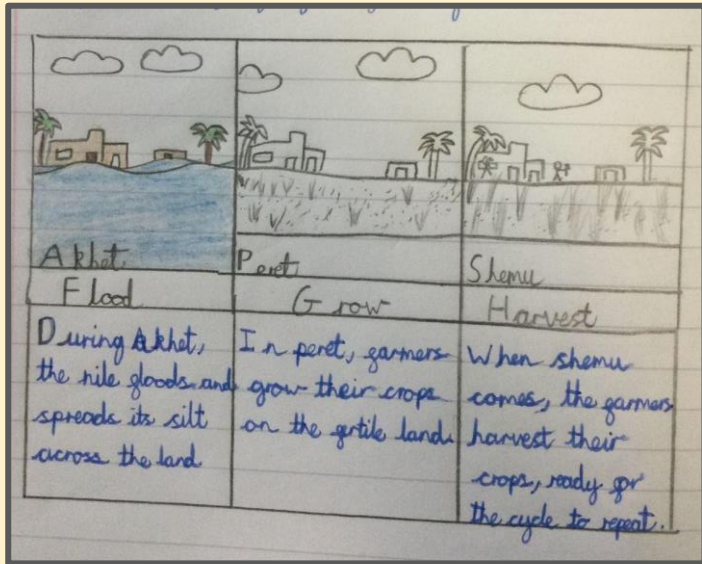 Akhet
Peret
Shemu
Flood
Grow
Harvest
During Akhet,
the nile floods and
spreads its silt
across the land
In peret, farmers
grow their crops
on the fertile land.
When shemu
comes, the farmers
harvest their
crops, ready for
the cycle to repeat.